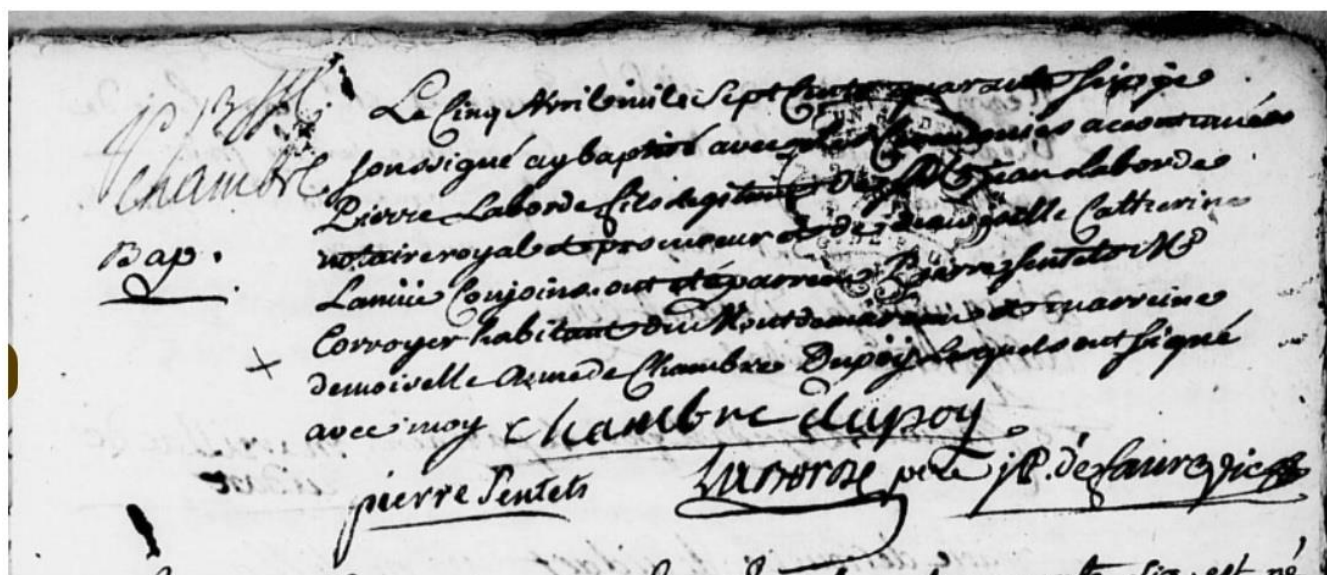 chambre
Bap.
Le Cinq Avril mile Sept Cents quarante six je
soussigné ay baptisé avec les Ceremonies accoutumées
Pierre Laborde fils legitime de Jean Laborde
notaire royal et procureur et de demoiselle Catherine
Lamiu Conjoins ont été parrein Pierre Sentets Me
Corroyer habitant du Montdemarsan et marreine
demoiselle de Chambre Dupoy lequels ont signé
avec moy chambre dupoy
pierre Sentets Laborde pere
est né